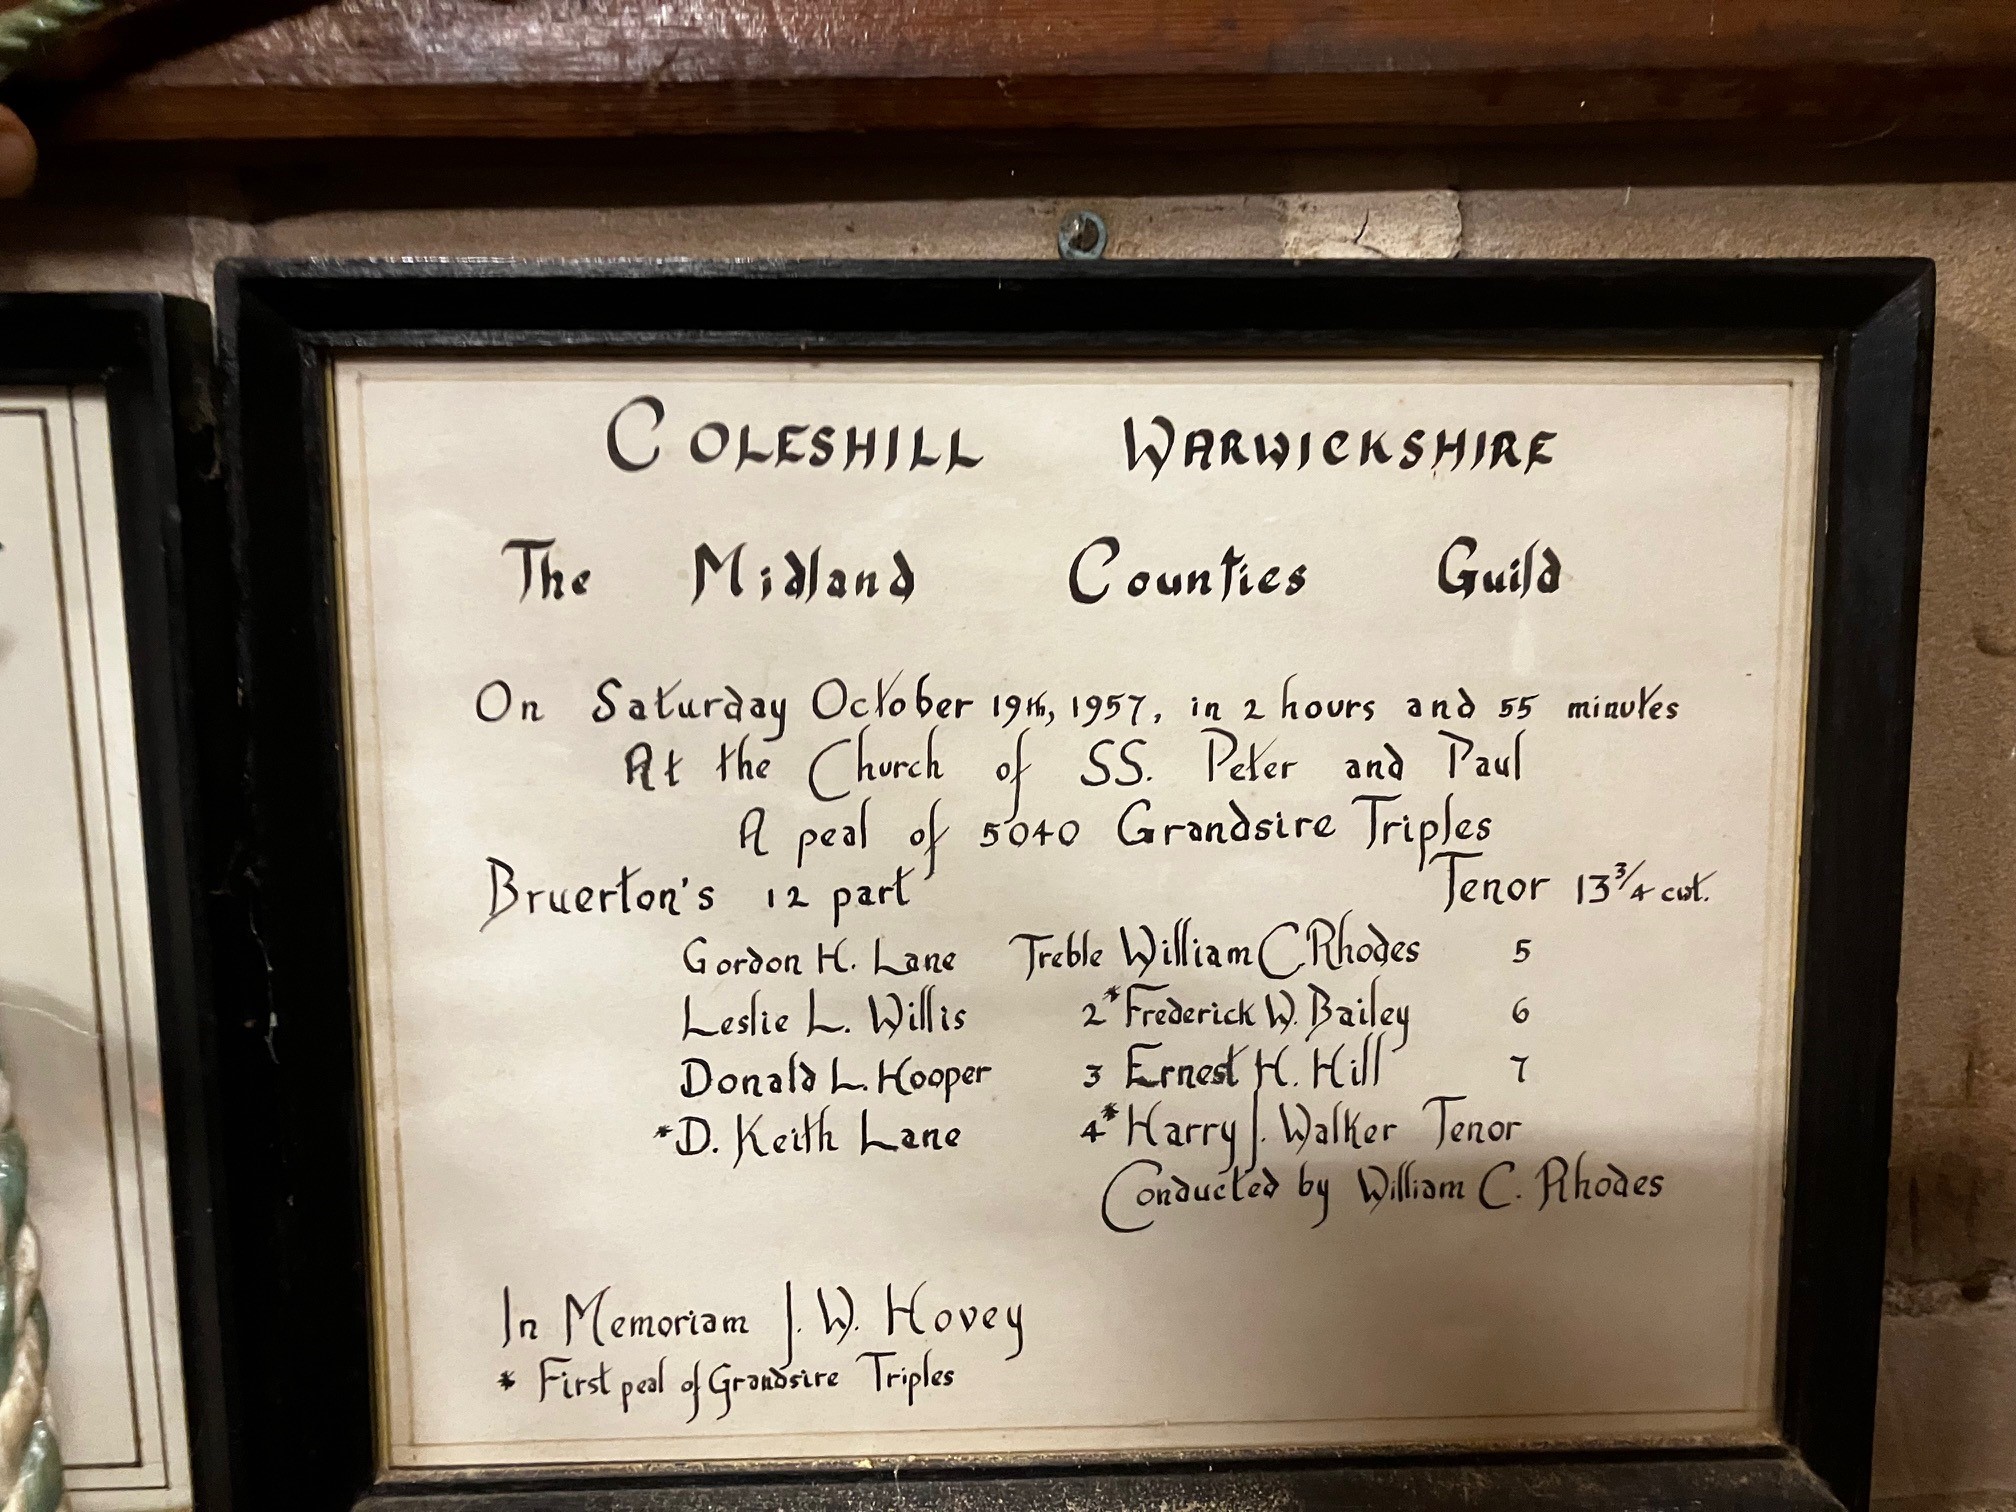 COLESHILL WARWICKSHIRE
The Midland Counties Guild
On Saturday October 19th, 1957, in 2 hours and 55 minutes
At the Church of SS. Peter and Paul
A peal of 5040 Grandsire Triples
Bruerton's 12 part Tenor 13 3/4 cwt.
Gordon H. Lane Treble William C Rhodes 5
Leslie L. Willis 2 *Frederick W. Bailey 6
Donald L. Hooper 3 Ernest H. Hill 7
*D. Keith Lane 4 *Harry J. Walker Tenor
Conducted by William C. Rhodes
In Memoriam J. W. Hovey
* First peal of Grandsire Triples